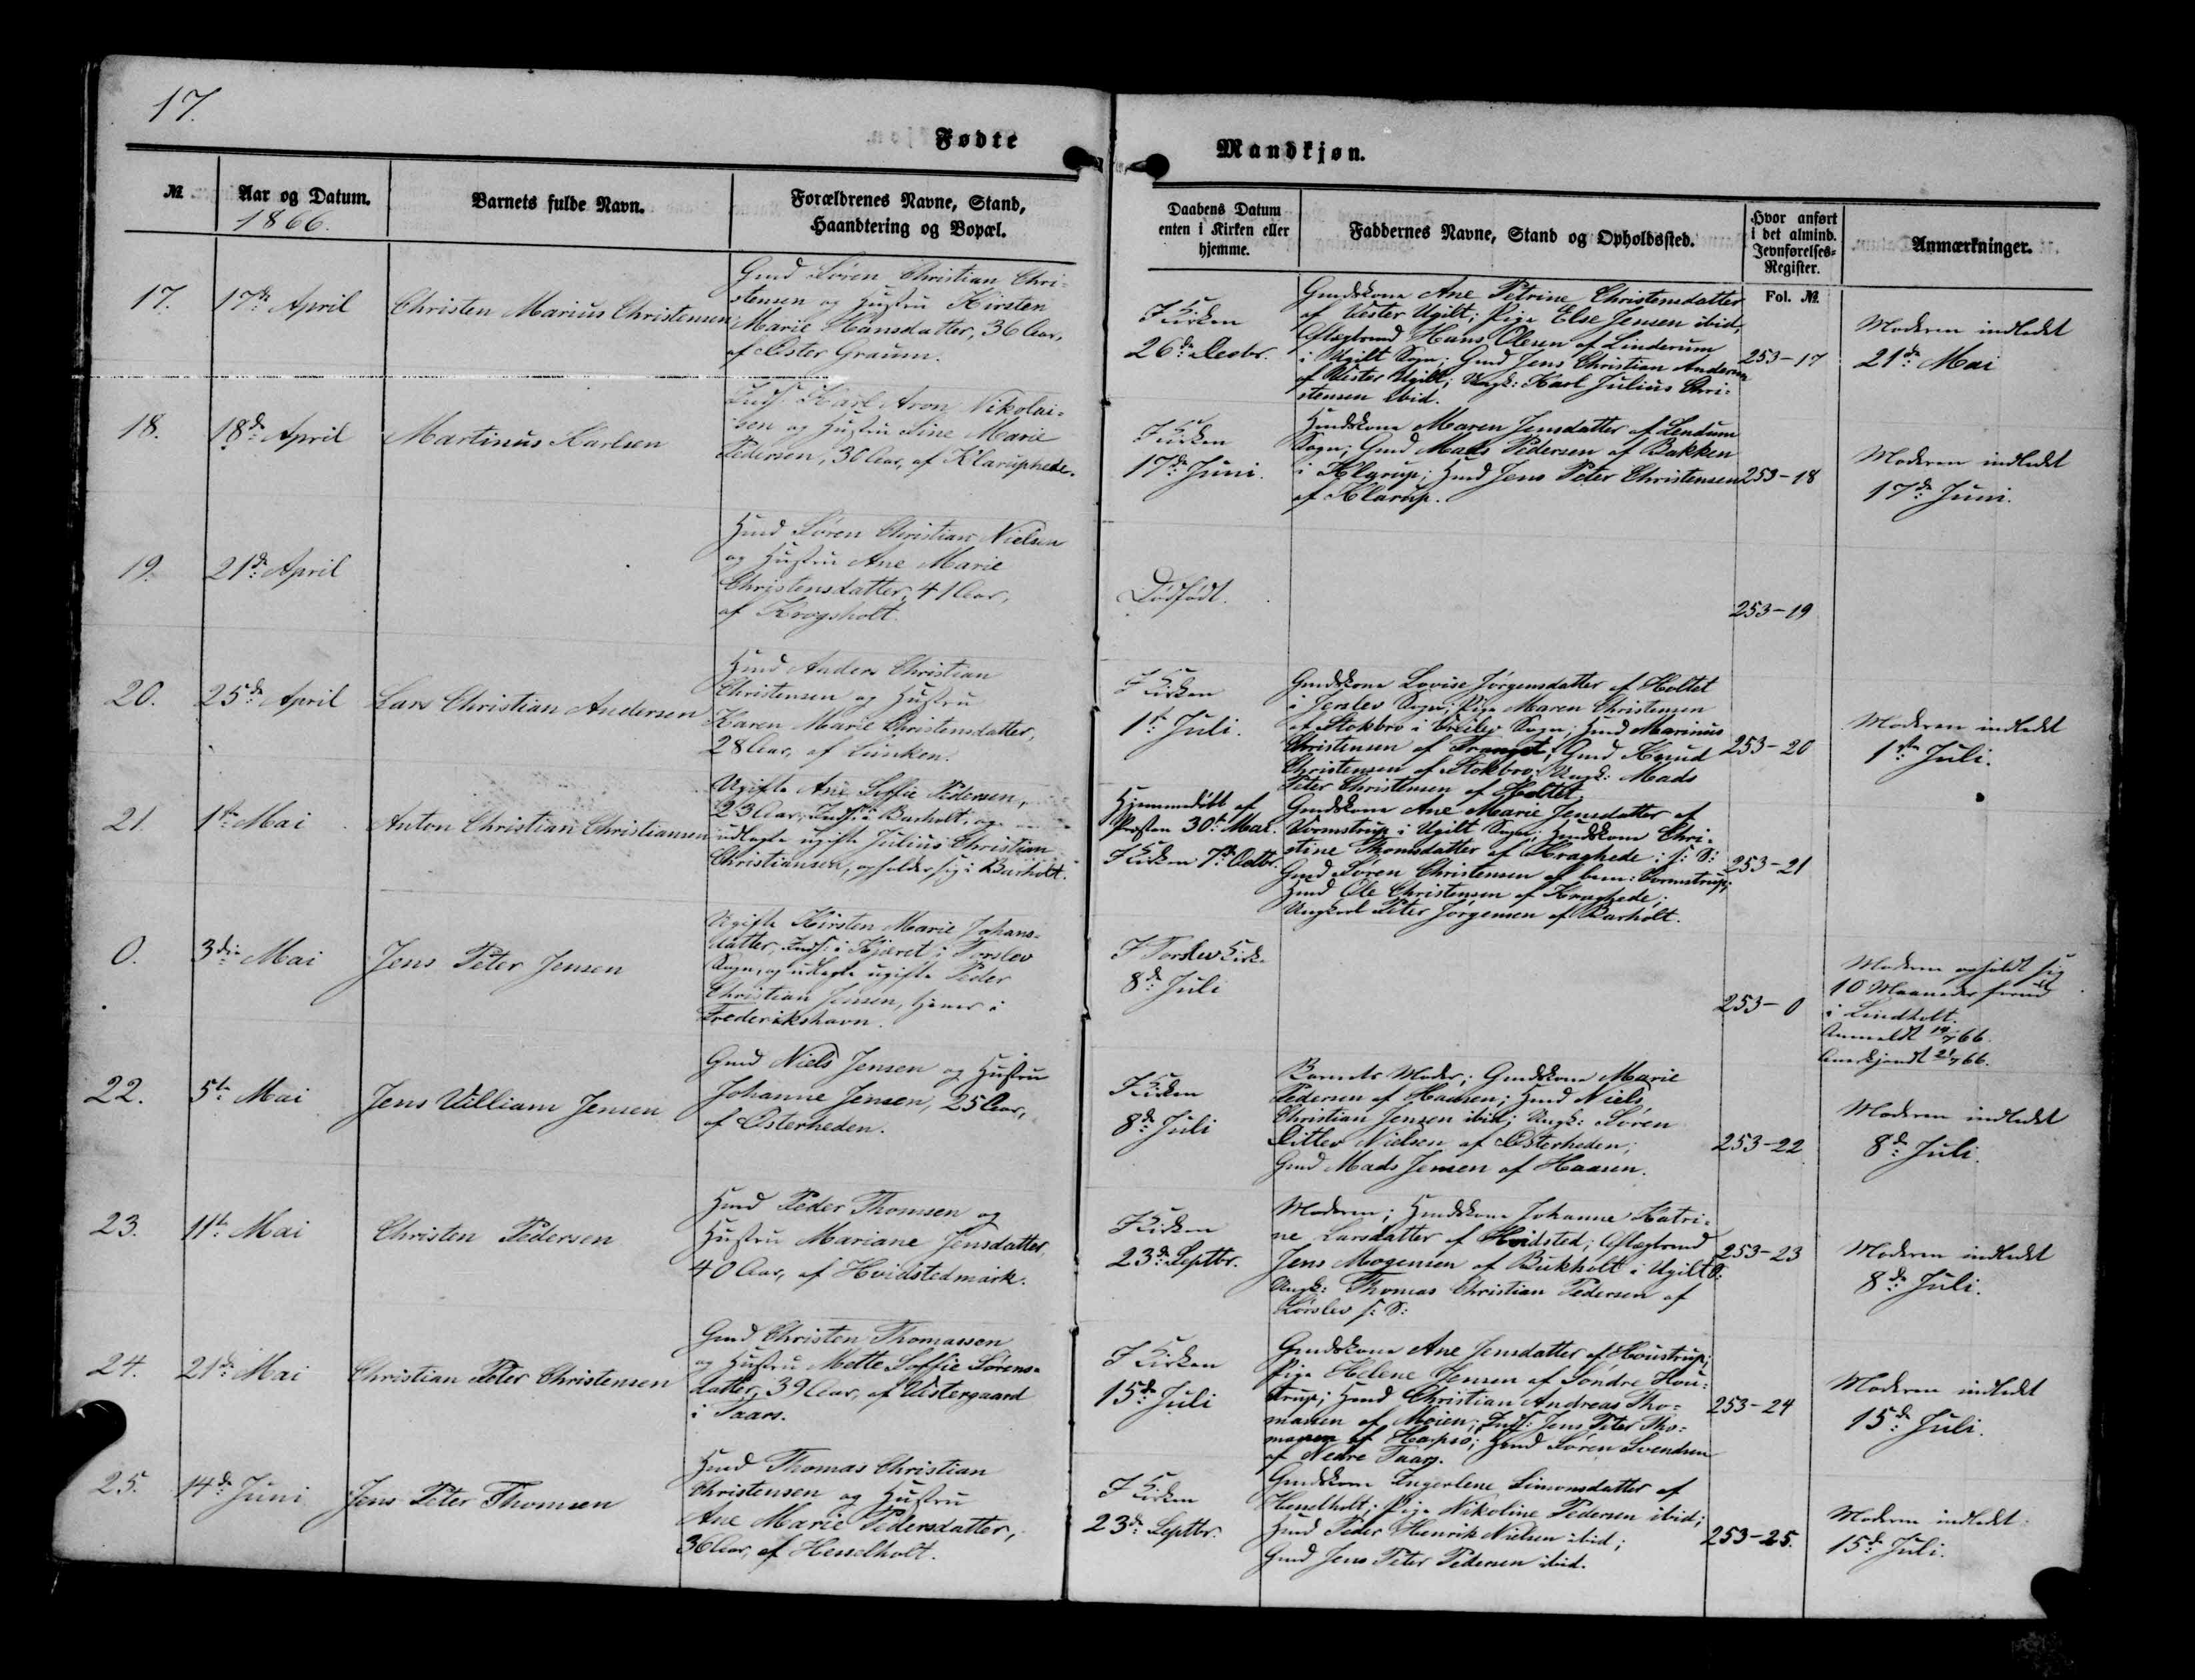 17.
Fødte
Mandkjøn.
№
Aar og Datum.
1866.
Barnets fulde Navn.
Forældrenes Navne, Stand,
Haandtering og Bopæl.
Daabens Datum
enten i Kirken eller
hjemme.
Faddernes Navne, Stand og Opholdssted.
Hvor anført
i det almind.
Jevnførelses-
Register.
Fol. №
Anmærkninger.
17.
17de April
Christen Marius Christensen
Gmd Søren Christian Chri-
stensen og Hustru Kirsten
Marie Hansdatter, 36 Aar,
af Øster Graum.
I Kirken
26de Decbr.
Gmdskone Ane Petrine Christensdatter
af Vester Ugilt; Pige Else Jensen ibid,
Aftægtsmd Hans Olesen af Linderum
i Ugilt Sogn; Gmd Jens Christian Andersen
af Vester Ugilt; Ungk: Karl Julius Chri-
stensen ibid.
253-17
Moderen indledt
21de Mai
18.
18de April
Martinus Karlsen
Inds. Karl Aron Nikolai-
sen og Hustru Sine Marie
Pedersen, 30 Aar, af Klaruphede.
I Kirken
17de Juni.
Hmdskone Maren Jensdatter af Lendum
Sogn; Gmd Mads Pedersen af Bakken
i Klarup; Hmd Jens Peter Christensen
af Klarup.
253-18
Moderen indledt
17de Juni.
19.
21de April
Hmd Søren Christian Nielsen
og Hustru Ane Marie
Christensdatter, 41 Aar,
af Krogsholt.
Dødfødt.
253-19
20.
25de April
Lars Christian Andersen
Hmd Anders Christian
Christensen og Hustru
Karen Marie Christensdatter,
28 Aar, af Lunken.
I Kirken
1ste Juli.
Gmdskone Lovise Jørgensdatter af Holtet
i Jerslev Sogn; Pige Maren Christensen
af Stokbro i Vreilev Sogn; Hmd Marinus
Christensen af Tranget; Gmd Knud
Christensen af Stokbro; Ungk: Mads
Peter Christensen af Holtet.
253-20
Moderen indledt
1ste Juli.
21.
1ste Mai
Anton Christian Christiansen
Ugifte Ane Soffie Pedersen,
23 Aar, Inds. i Barholt, og
udlagte ugifte Julius Christian
Christiansen, opholder sig i Barholt.
Hjemmedøbt af
Præsten 30te Mai.
I Kirken 7de Octbr.
Gmdskone Ane Marie Jensdatter af
Vormstrup i Ugilt Sogn; Hmdskone Chri-
stine Thomsdatter af Kraghede i s: S:
Gmd Søren Christensen af bem: Vormstrup;
Hmd Ole Christensen af Kraghede;
Ungkarl Peter Jørgensen af Barholt.
253-21
0.
3die Mai
Jens Peter Jensen
Ugifte Kirsten Marie Johans-
datter, Inds: i Kjæret i Torslev
Sogn, og udlagte ugifte Peder
Christian Jensen, tjener i
Frederikshavn.
I Torslev Kirke
8de Juli
253-0
Moderen opholdt sig
10 Maaneder forud
i Lindholt.
Anmeldt 19/7 66.
Anerkjendt 21/7 66.
22.
5te Mai
Jens Villiam Jensen
Gmd Niels Jensen og Hustru
Johanne Jensen, 25 Aar,
af Østerheden.
I Kirken
8de Juli
Barnets Moder; Gmdskone Marie
Pedersen af Haasen; Hmd Niels
Christian Jensen ibid; Ungk: Søren
Ditlev Nielsen af Østerheden;
Gmd Mads Jensen af Haasen.
253-22
Moderen indledt
8de Juli.
23.
11te Mai
Christen Pedersen
Hmd Peder Thomsen og
Hustru Mariane Jensdatter,
40 Aar, af Hvidstedmark.
I Kirken
23de Septbr.
Moderen; Hmdskone Johanne Katri-
ne Larsdatter af Hvidsted; Aftægtsmd
Jens Mogensen af Birkholt i Ugilt S:
Ungk: Thomas Christian Pedersen af
Lørslev s: S:
253-23
Moderen indledt
8de Juli.
24.
21de Mai
Christian Peter Christensen
Gmd Christen Thomassen
og Hustru Mette Soffie Sørens-
datter, 39 Aar, af Vestergaard
i Taars.
I Kirken
15de Juli
Gmdskone Ane Jensdatter af Houstrup;
Pige Helene Jensen af Søndre Hou-
strup; Hmd Christian Andreas Tho-
massen af Moien; Inds: Jens Peter Tho-
massen af Harpsø; Hmd Søren Svendsen
af Nedre Taars.
253-24
Moderen indledt
15de Juli.
25.
14de Juni
Jens Peter Thomsen
Hmd Thomas Christian
Christensen og Hustru
Ane Marie Pedersdatter,
36 Aar, af Hesselholt.
I Kirken
23de Septbr.
Gmdskone Ingerlene Simonsdatter af
Hesselholt; Pige Nikoline Pedersen ibid;
Hmd Peder Henrik Nielsen ibid;
Gmd Jens Peter Pedersen ibid.
253-25.
Moderen indledt
15de Juli.